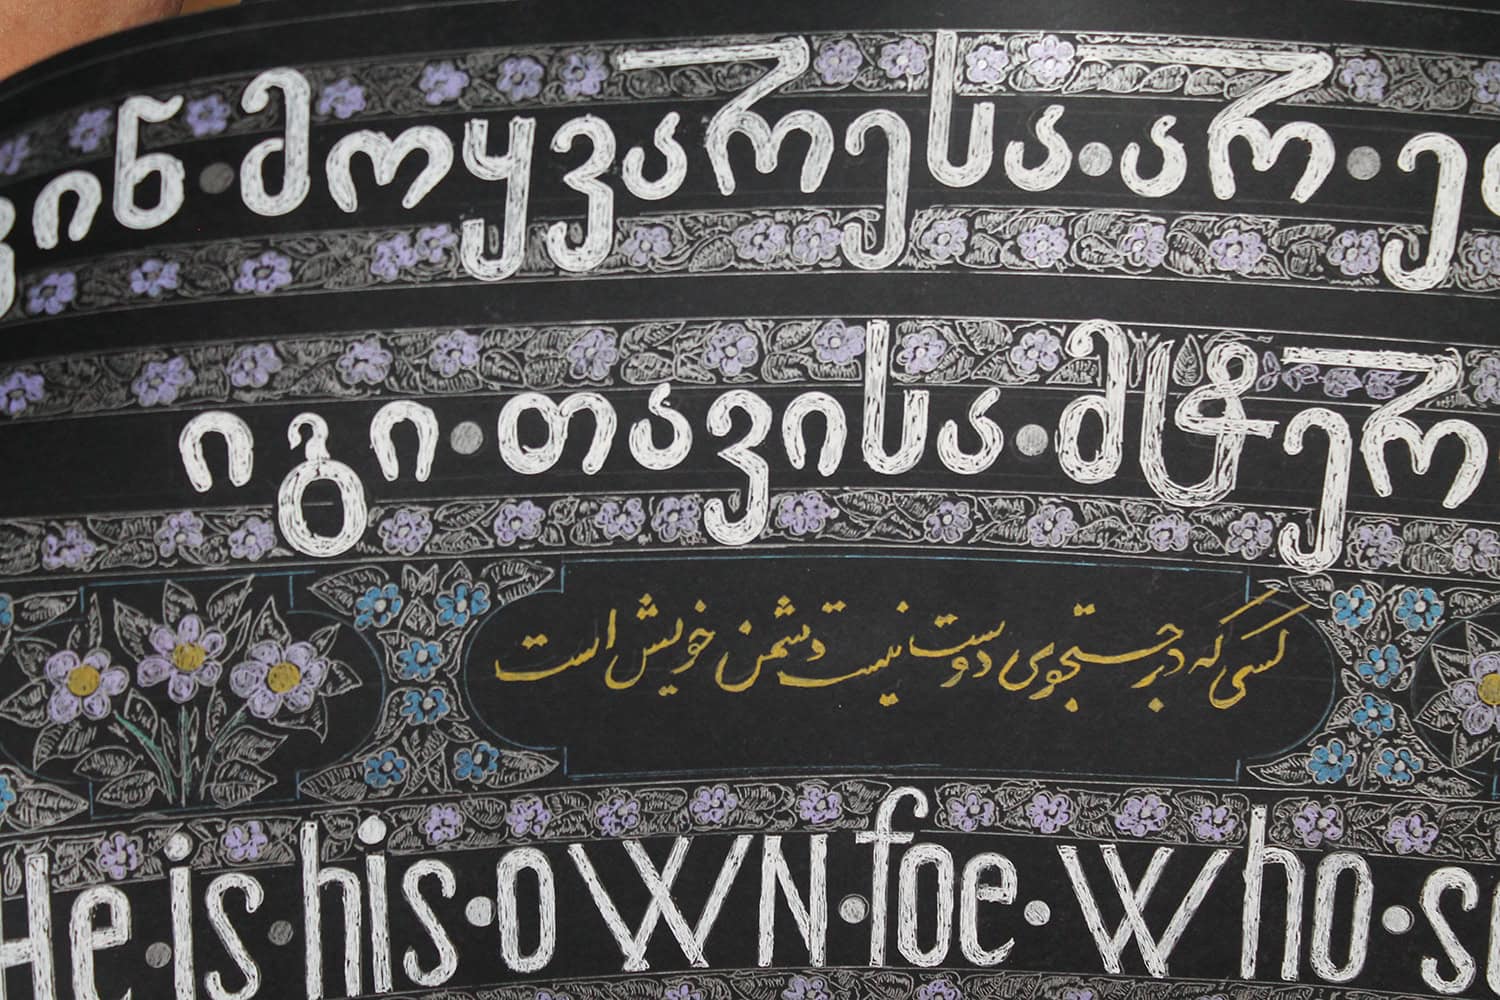 ვინ · მოყვარესა · არ · ე
იგი · თავისა · მტერ
کسی که در جستجوی دوست نیست دشمن خویش است
He · is · his · own · foe · who · se